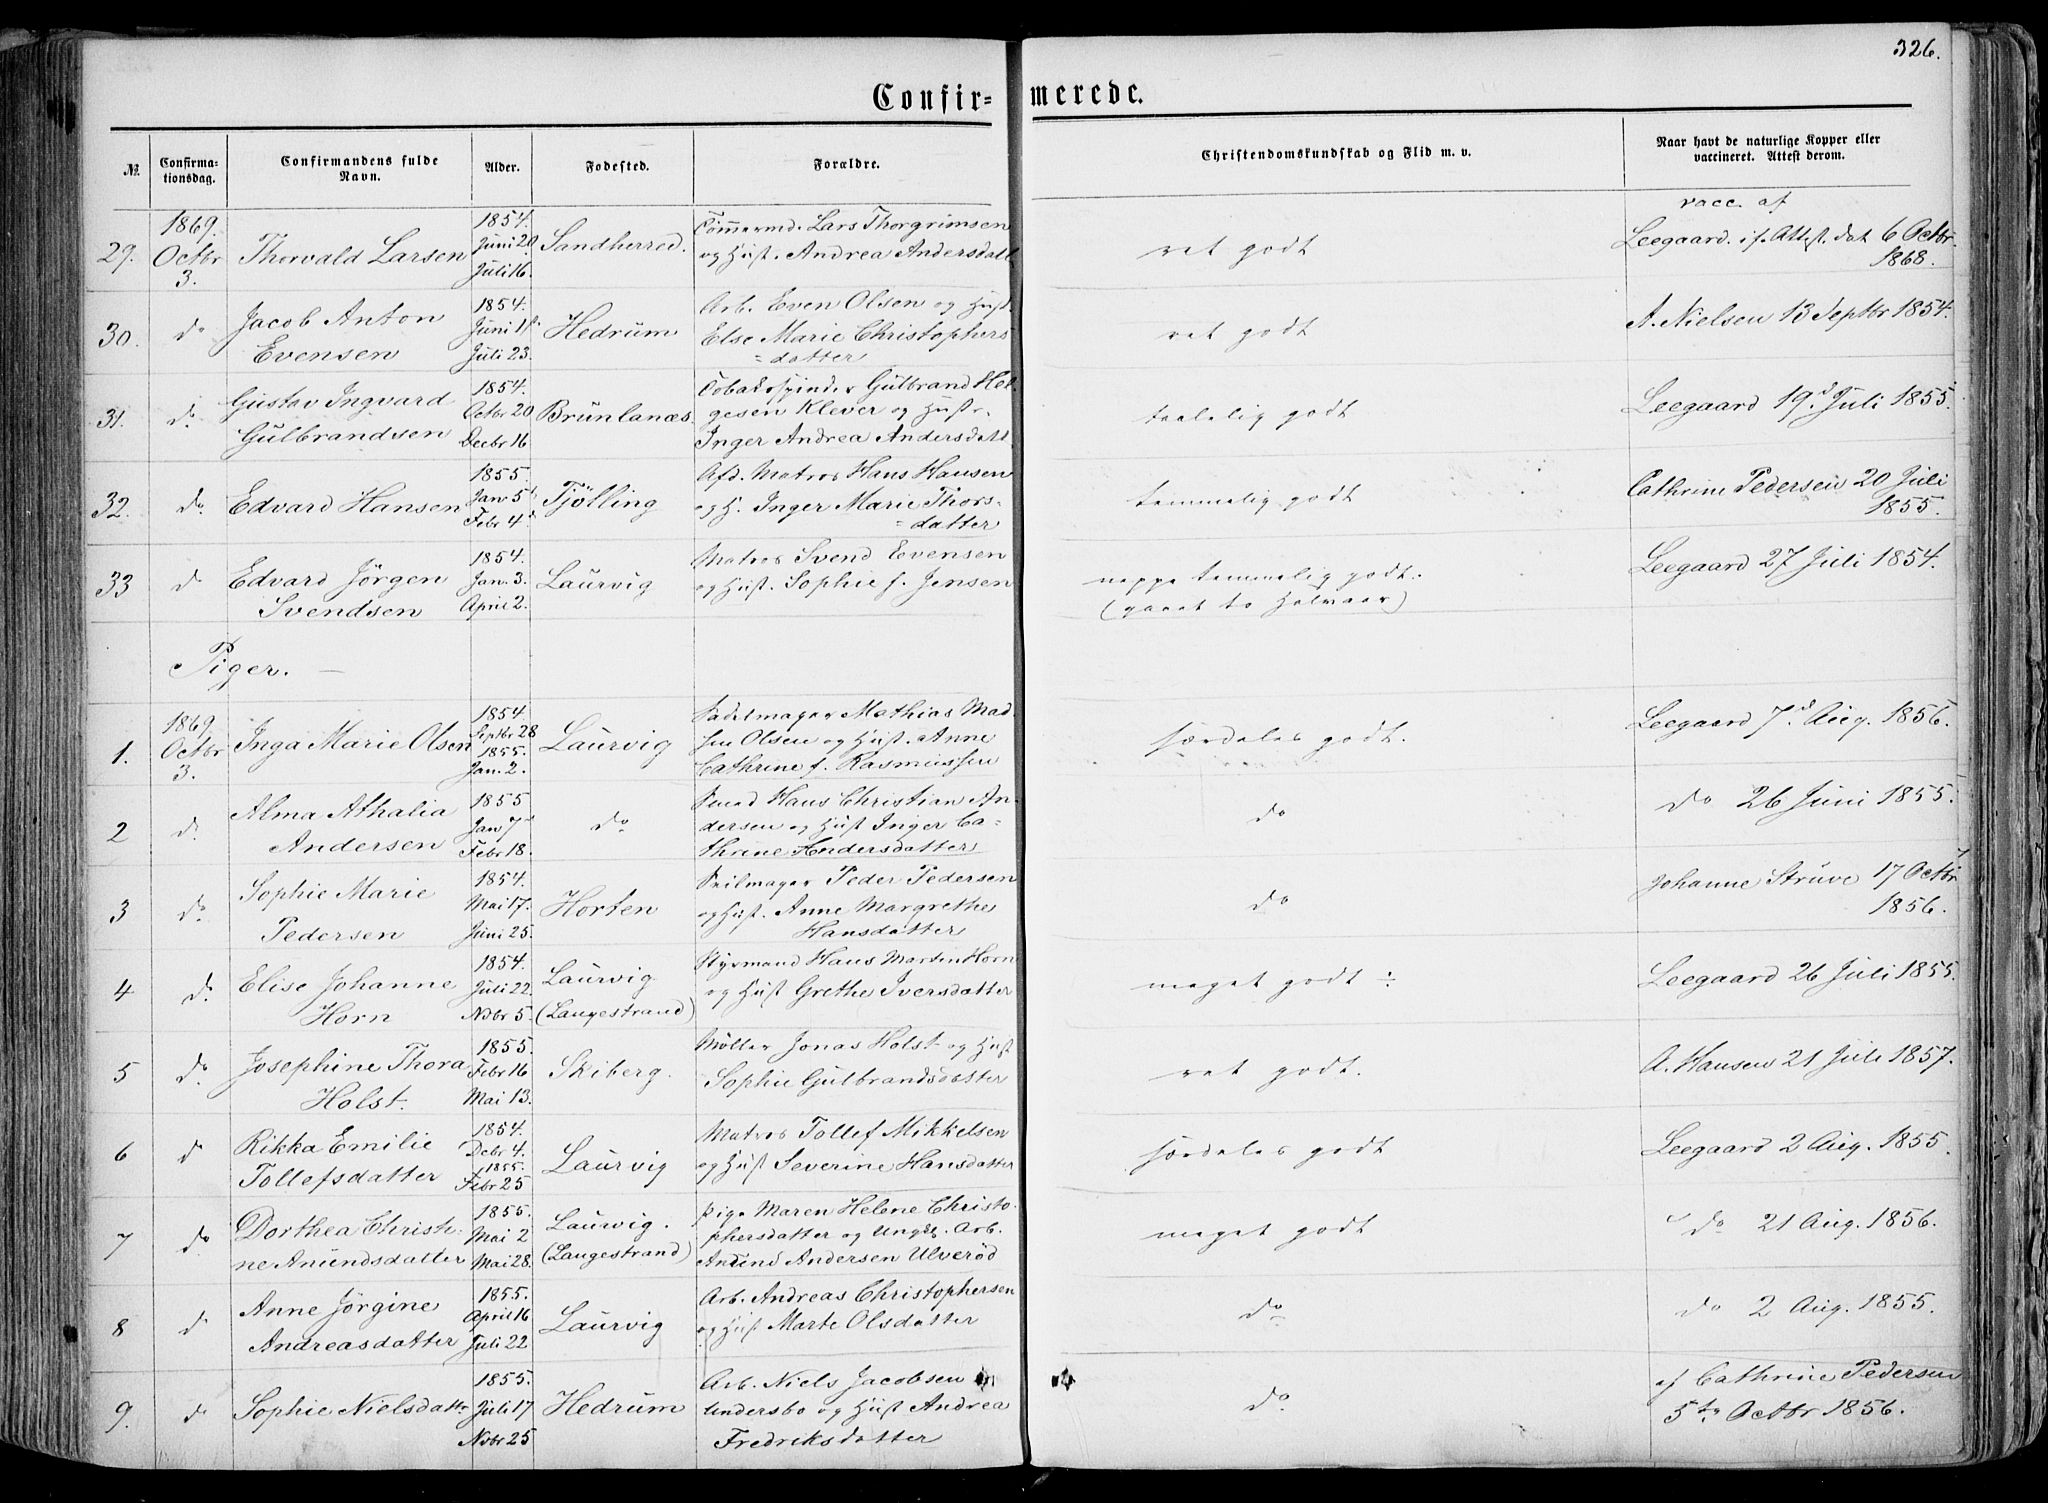 326.
Confir- merede.
№
Confirma-
tionsdag.
Confirmandens fulde
Navn.
Alder.
Fodested.
Forældre.
Christendomskundskab og Flid m. v.
Naar havt de naturlige Kopper eller
vaccineret. Attest derom.
29. 1869. Octbr 3. Thorvald Larsen 1854. Juni 20 Juli 16. Sandherred.
Tömmermd. Lars Thorgrimsen
og Hust. Andrea Andersdatt.
ret godt
vacc. af
Leegaard. if. Attest. dat 6 Octbr
1868.
30. do Jacob Anton
Evensen
1854. Juni 18 Juli 23. Hedrum
Arb. Even Olsen og Hust.
Else Marie Christophers
=datter
ret godt
A. Nielsen 13 Septbr 1854.
31. do Gustav Ingvard
Gulbrandsen
1854. Octbr 20 Decbr 16 Brunlanæs.
Tobakspinder Gulbrand Hel-
gesen Klever og Hustr.
Inger Andrea Andersdatt.
taalelig godt
Leegaard 19d Juli 1855.
32. do Edvard Hansen 1855. Jan 5 Febr 4 Tjölling
Afd. Matros Hans Hansen
og H. Inger Marie Thors-
=datter
temmelig godt
Cathrine Pedersen 20 Juli
1855.
33 do Edvard Jörgen
Svendsen
1854. Jan. 3. April 2. Laurvig
Matros Svend Evensen
og Hust. Sophie f. Jensen
neppe temmelig godt.
(gaaet to Halvaar)
Leegaard 27 Juli 1854.
Piger. —
1. 1869. Octbr 3. Inga Marie Olsen 1854. Septbr 28 1855. Jan. 2. Laurvig
Sadelmager Mathias Mad-
sen Olsen og Hust. Anne
Cathrine f. Rasmussen
særdeles godt.
Leegaard 7d Aug. 1856.
2 do Alma Athalia
Andersen
1855 Jan 7 Febr 18. do
Smed Hans Christian An-
dersen og Hust Inger Ca-
thrine Andersdatter
do
do 26 Juni 1855.
3 do Sophie Marie
Pedersen
1854. Mai 17. Juni 25. Horten
Seilmager Peder Pedersen
og Hust. Anne Margrethe
Hansdatter
do
Johanne Struve 17 Octbr
1856.
4 do Elise Johanne
Horn
1854. Juli 22. Nvbr 5. Laurvig
(Langestrand)
Styrmand Hans Morten Horn
og Hust Grethe Iversdatter
meget godt ÷
Leegaard 26 Juli 1855.
5 do Josephine Thora
Holst.
1855. Febr 16 Mai 13. Skiberg.
Möller Jonas Holst og Hust
Sophie Gulbrandsdatter
ret godt.
A. Hansen 21 Juli 1857.
6 do Rikka Emilie
Tollefsdatter
1854. Debr 4. 1855. Febr 25 Laurvig
Matros Tollef Mikkelsen
og Hust Severine Hansdatter
særdeles godt
Leegaard 2 Aug. 1855.
7 do Dorthea Christi-
ne Anundsdatter
1855. Mai 2 Mai 28. Laurvig.
(Langestrand)
Pige Maren Helene Christo-
phersdatter og Ungk. Arb.
Anund Andersen Ulveröd
meget godt
do 21 Aug. 1856.
8 do Anne Jörgine
Andreasdatter
1855. April 16 Juli 22 Laurvig
Arb. Andreas Christophersen
og Hust Marte Olsdatter
do
do 2 Aug. 1855.
9. do Sophie Nielsdattr 1855. Juli 17 Nvbr 25 Hedrum
Arb. Niels Jacobsen
Undersbo og Hust Andrea
Fredriksdatter
do
af Cathrine Pedersen
5te Octbr 1856.